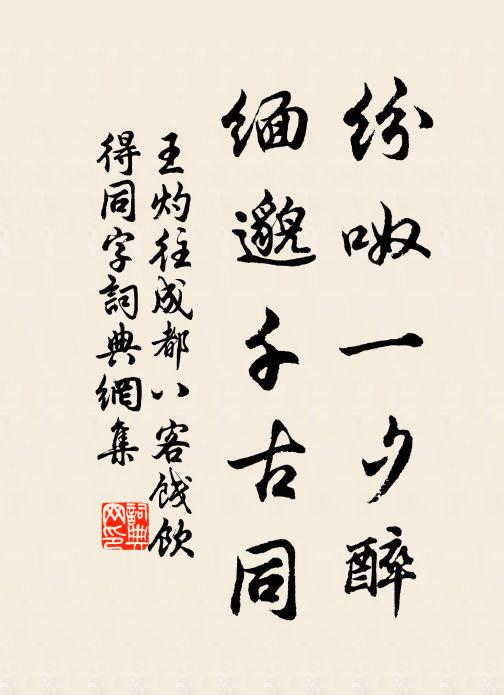 纷呶一夕醉
缅邈千古同
王灼往成都八客饯饮
得同字詞典網集
詞典
网印